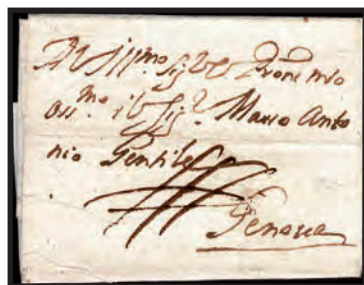 All Ill.mo Sig.re e Prone mio
oss.mo il Sig.r Marco Anto
nio Gentile
Genova